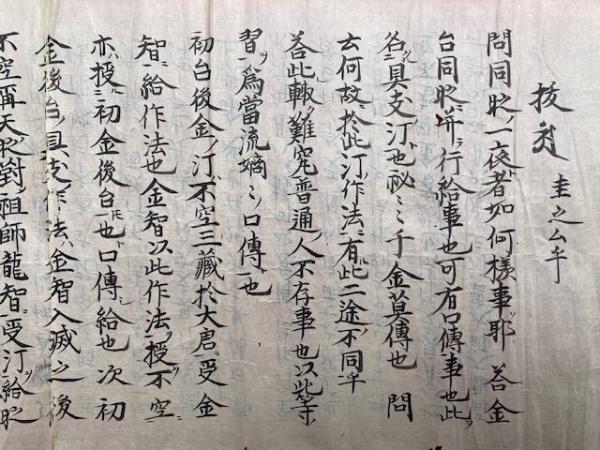 問同時一夜者如何樣事耶 答金
台同時并行給事也可有口傳事也此ヲ
名具支汀也祕〻千金莫傳也 問
云何故ニ於此汀作法ニ有此二途不同乎
答此輙難究普通ノ人不存事也以此等ヲ
習爲當流嫡〻ノ口傳也
初台後金ノ汀ハ不空三藏於大唐受金
智ニ給作法也金智以此作法ヲ授不空ニ
亦授初金後台也口傳給也次初
金後台具支作法ハ金智入滅之後
不空稱天時對祖師龍智受汀給時